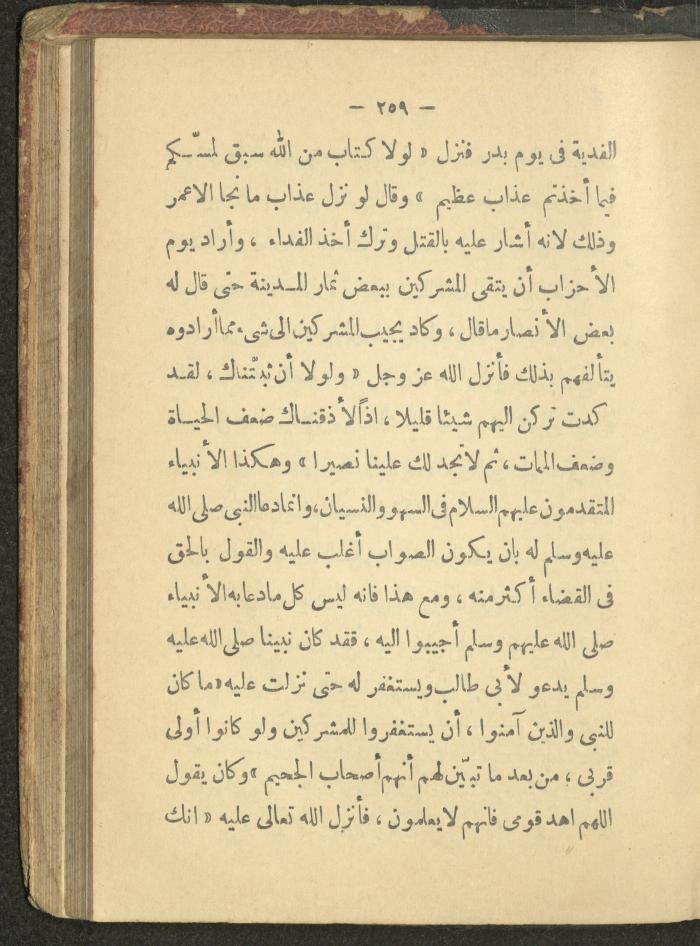 — ٢٥٩ —
الفدية فى يوم بدر فنزل « لولا كتاب من الله سبق لمسّكم
فيما أخذتم عذاب عظيم » وقال لو نزل عذاب ما نجا الا عمر
وذلك لانه أشار عليه بالقتل وترك أخذ الفداء ، وأراد يوم
الأحزاب أن يتقى المشركين ببعض ثمار المدينة حتى قال له
بعض الأنصار ما قال ، وكاد يجيب المشركين الى شىء مما أرادوه
يتألفهم بذلك فأنزل الله عز وجل « ولولا أن ثبّتناك ، لقد
كدت تركن اليهم شيئا قليلا ، اذاً لأذقناك ضعف الحياة
وضعف الممات ، ثم لا تجد لك علينا نصيرا » وهكذا الأنبياء
المتقدمون عليهم السلام فى السهو والنسيان ، وانما دعا النبى صلى الله
عليه وسلم له بان يكون الصواب أغلب عليه والقول بالحق
فى القضاء أكثر منه ، ومع هذا فانه ليس كل ما دعا به الأنبياء
صلى الله عليهم وسلم أجيبوا اليه ، فقد كان نبينا صلى الله عليه
وسلم يدعو لأبى طالب ويستغفر له حتى نزلت عليه « ما كان
للنبى والذين آمنوا ، أن يستغفروا للمشركين ولو كانوا أولى
قربى ؛ من بعد ما تبيّن لهم أنهم أصحاب الجحيم » وكان يقول
اللهم اهد قومى فانهم لا يعلمون ، فأنزل الله تعالى عليه « انك